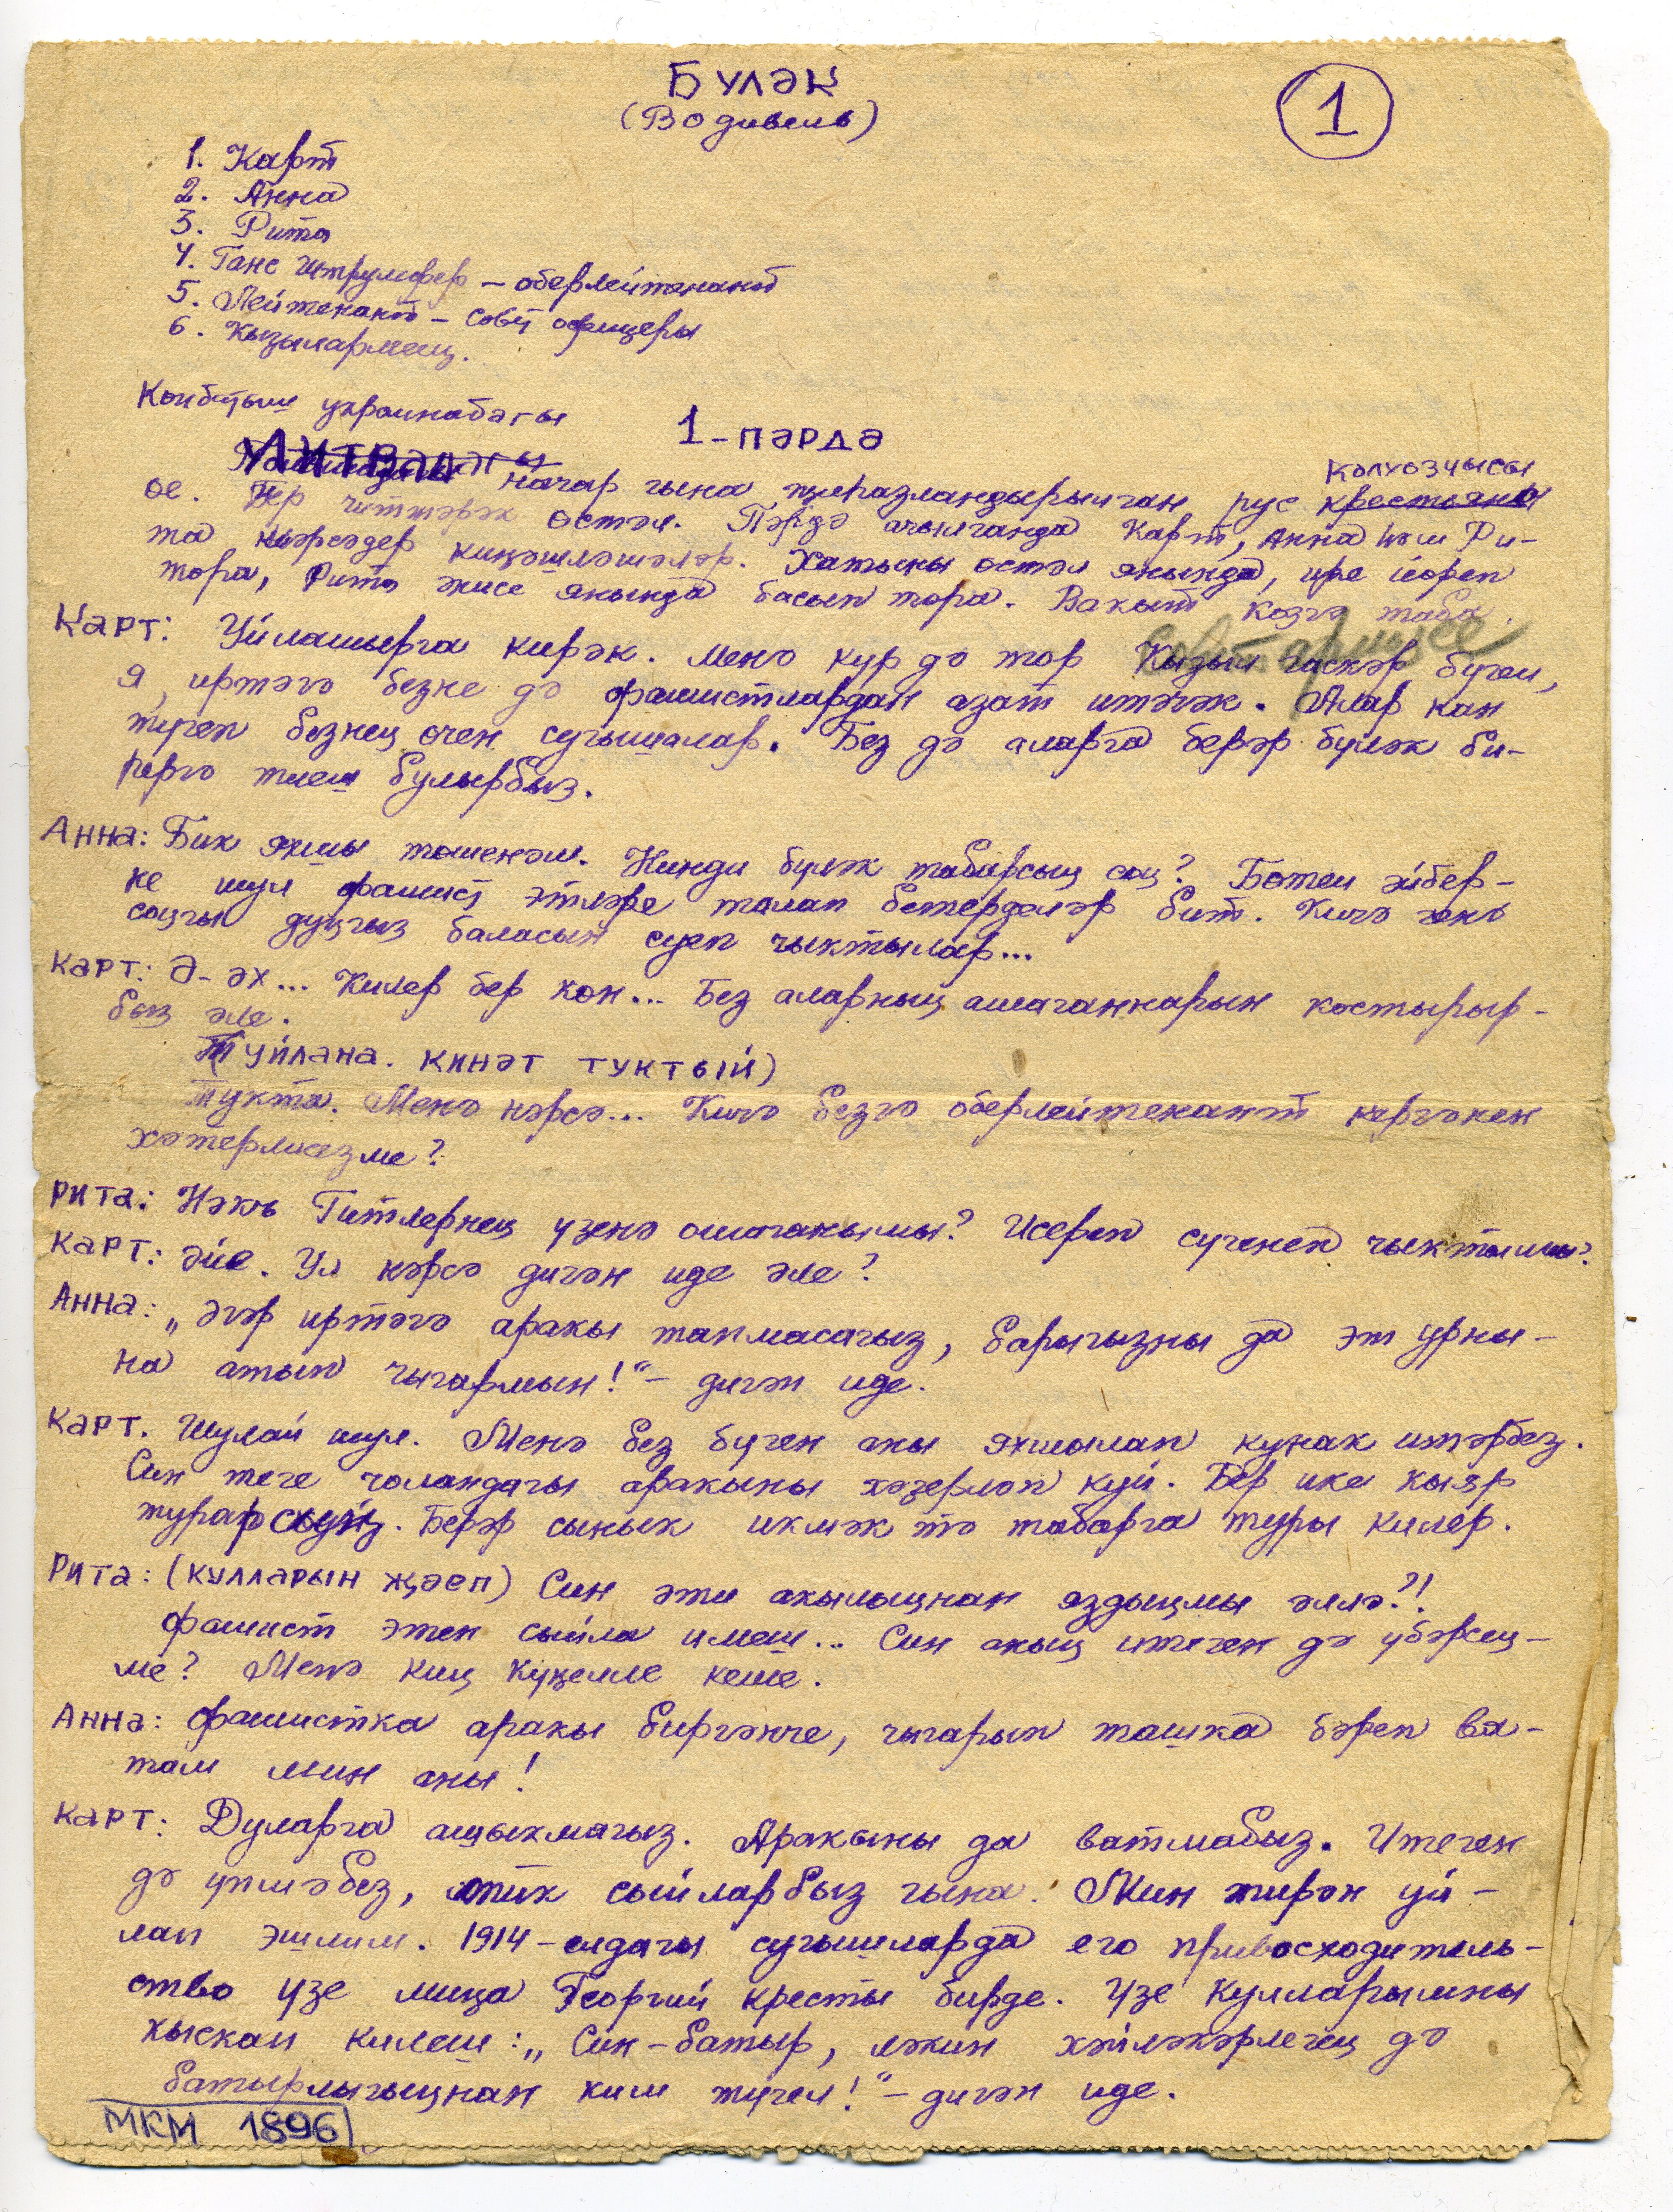 Бүләк
(Водивель)
1
1. Карт
2. Анна
3. Рита
4. Ганс Штрумфер – оберлейтенант
5. Лейтенант – совет офицеры
6. Кызылармеец.
Көнбатыш украинабагы
1-пәрдә
Литва начар гына җиһазландырылган рус крестьяны колхозчысы
өе. Бер читтәрәк өстәл. Пәрдә ачылганда Карт, Анна һәм Ри-
та нәрсәдер киңәшләшәләр. Хатыны өстәл янында, ире йөреп
тора, Рита янында басып тора. Вакыт көзгә таба.
Карт: Уйлашырга кирәк. Менә күр дә тор Кызыл гаскәр бүген, Совет армиясе
я, иртәгә безне дә фашистлардан азат итәчәк. Алар кан
түгеп безнең өчен сугышалар. Без дә аларга берәр бүләк би-
рергә тиеш булырбыз.
Анна: Бик яхшы төшенәм. Нинди бүләк табарсың соң? Бөтен әйбер-
не шул фашист этләре талап бетерделәр бит. Кичә генә
соңгы дуңгыз баласын суеп чыктылар...
Карт: Ә-әх... Килер бер көн... Без аларның ашаганнарын костырыр-
быз әле.
(уйлана. кинәт туктый)
Тукта. Менә нәрсә... Кичә безгә оберлейтенант кергәнен
хәтерлисезме?
Рита: Нәкъ Гитлернең үзенә ошаганымы? Исереп сүгенеп чыктымы?
Карт: Әйе. Ул нәрсә дигән иде әле?
Анна: „Әгәр иртәгә аракы тапмасагыз, барыгызны да эт урны-
на атып чыгармын!“ – дигән иде.
Карт. Шулай шул. Менә без бүген аны яхшылап кунак итәрбез.
Син теге чоландагы аракыны хәзерләп куй. Бер ике кыяр
турарсың. Берәр сынык икмәк тә табарга туры килер.
Рита: (кулларын җәеп) Син әти акылыңнан яздыңмы әллә?!
фашист этен сыйла имеш... Син аның итеген дә үбәрсең-
ме? Менә киң күңелле кеше.
Анна: фашистка аракы биргәнче, чыгарып ташка бәреп ва-
там мин аны!
Карт: Дуларга ашыкмагыз. Аракыны да ватмабыз. Итеген
дә үпмәбез, тик сыйларбыз гына. Мин тирән уй-
лап эшлим. 1914-елдагы сугышларда его привосходитель-
ство үзе миңа Георгий кресты бирде. Үзе кулларымны
кыскан килеш: „Син – батыр, ләкин хәйләкәрлегең дә
батырлыгыңнан ким түгел!“ – дигән иде.
МКМ 1896